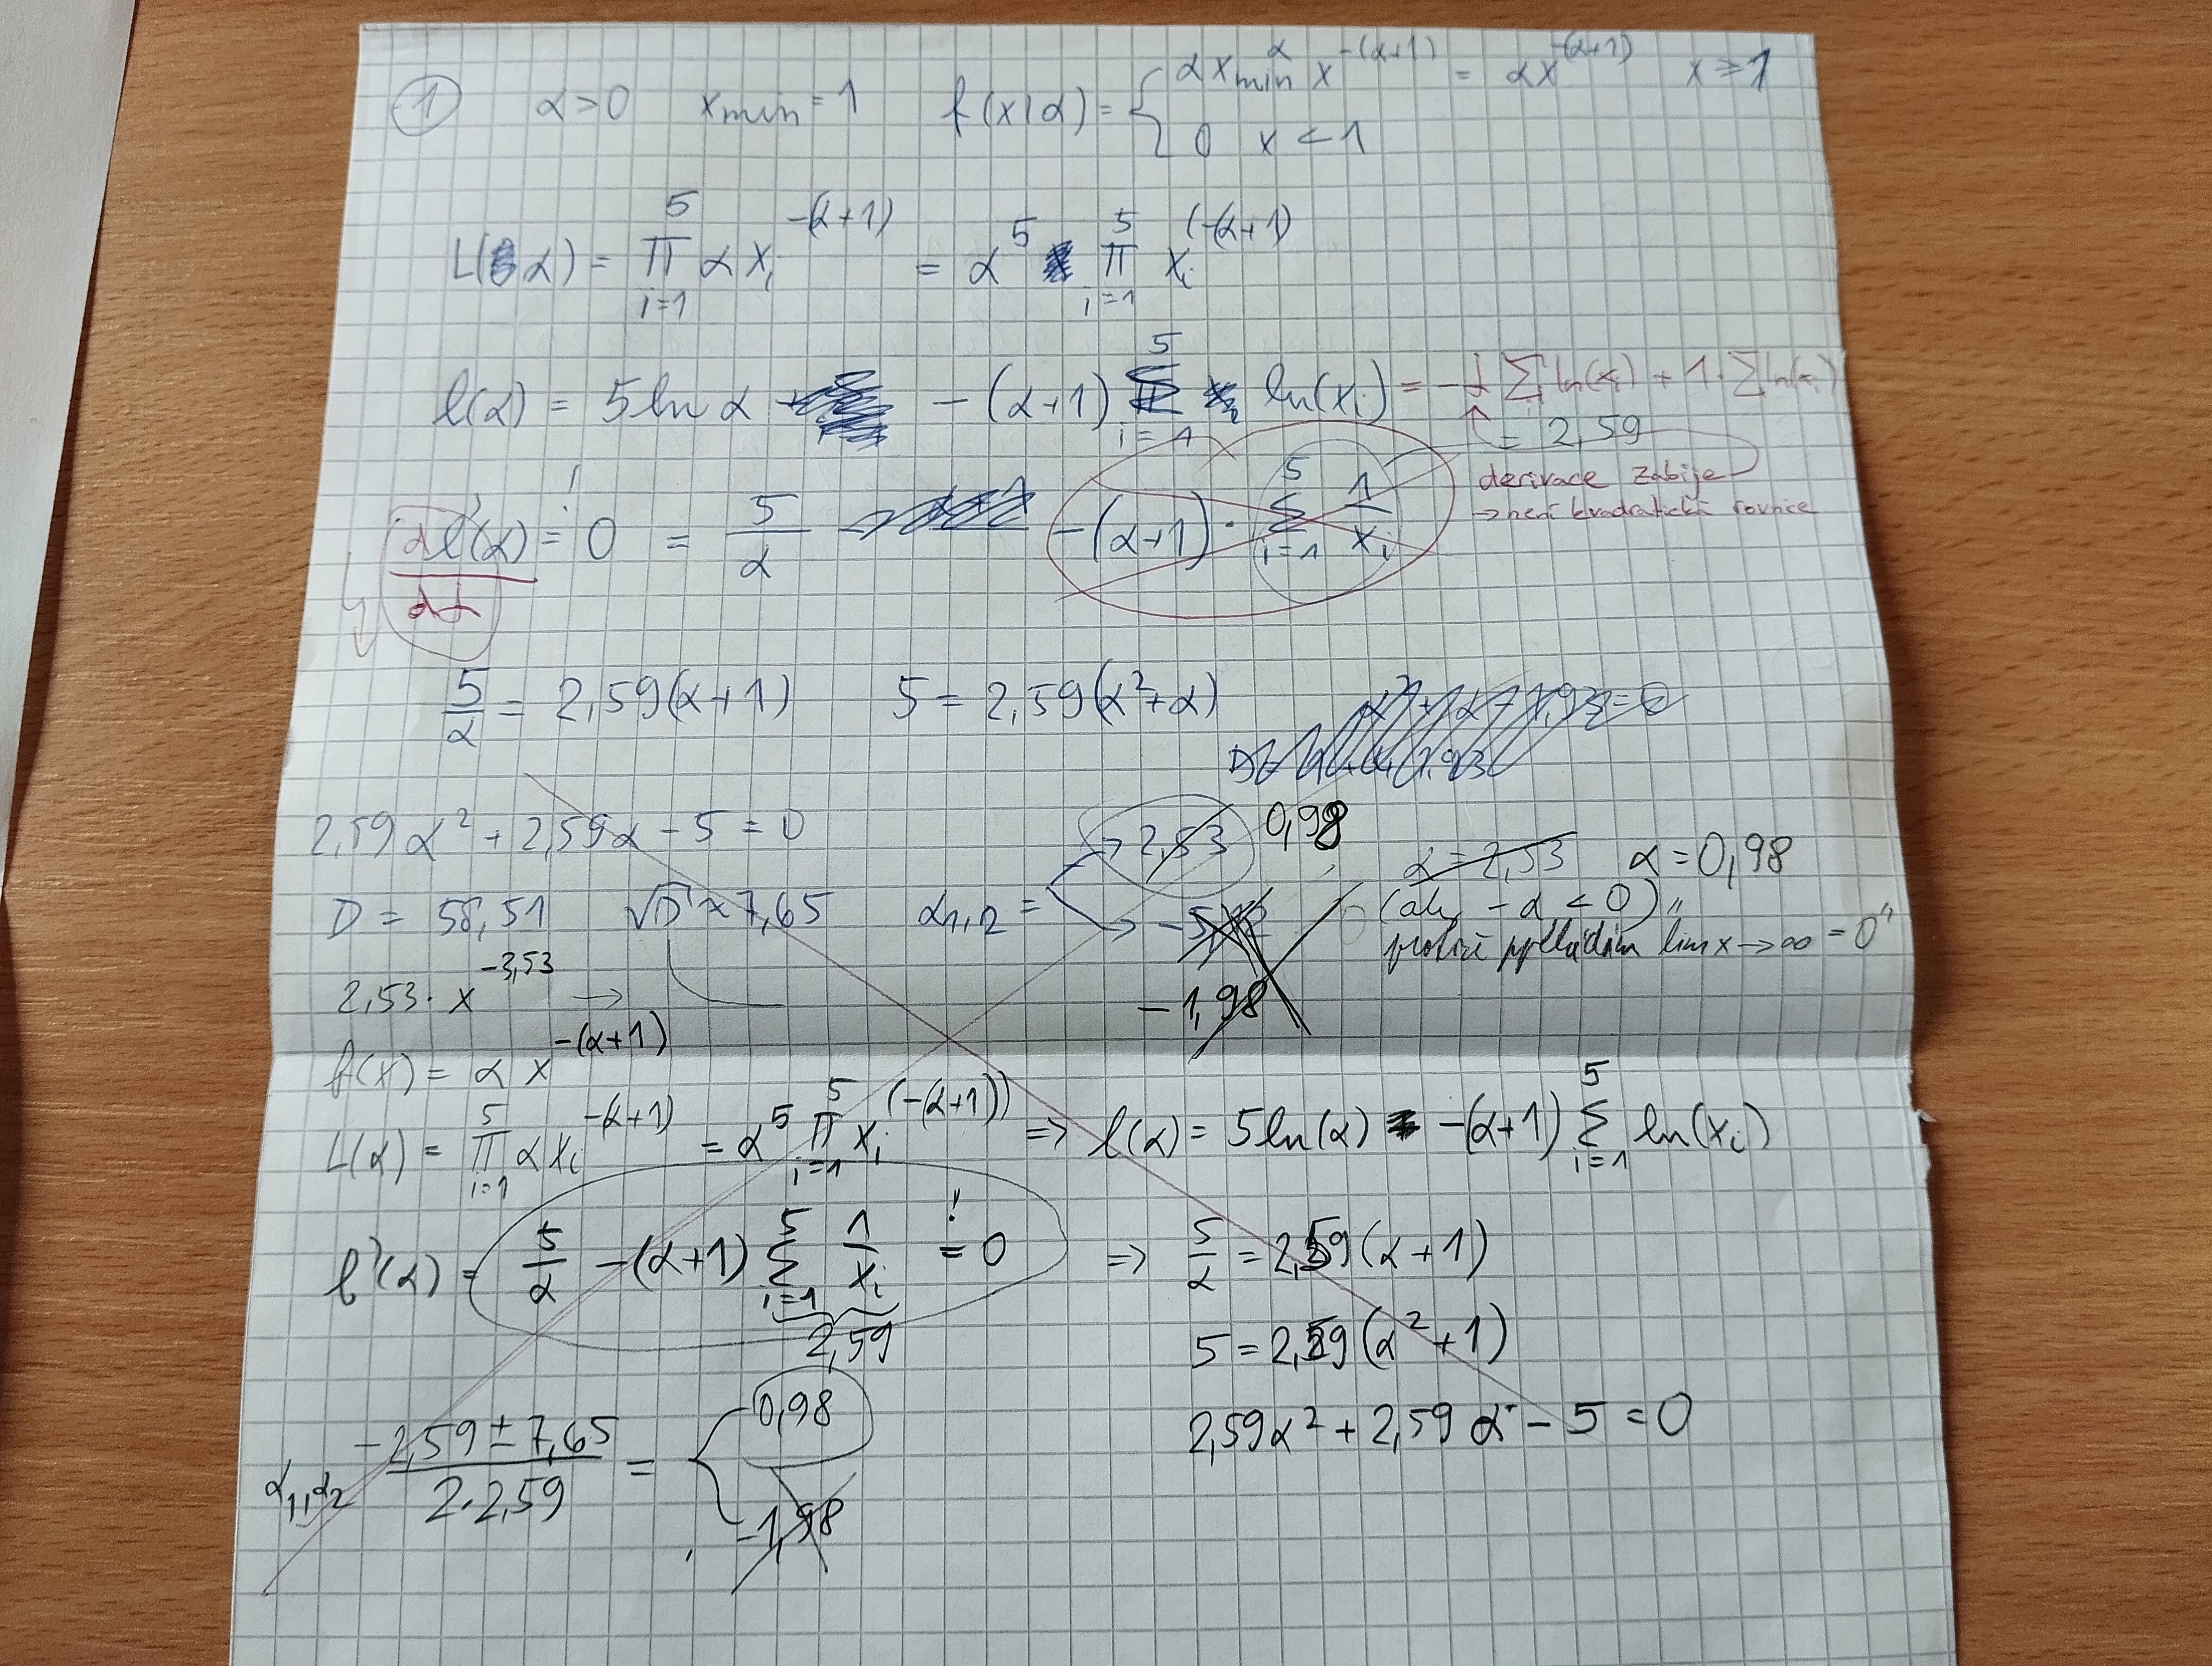 1 α>0 xmin=1 f(x|α)= { α xmin^α x^-(α+1) = αx^-(α+1) x ≥ 1
0 x < 1
L(α) = 5 π i=1 αxi^-(α+1) = α^5 5 π i=1 xi^(-(α+1)
l(α) = 5 ln α - (α+1) 5 Σ i=1 ln(xi) = -α Σ ln(xi) + 1·Σ ln(xi)
= 2,59
derivace zabije
→ není kvadratická rovnice
dl'(α)/dα =! 0 = 5/α -(α+1) · 5 Σ i=1 1/xi
5/α = 2,59(α+1) 5 = 2,59(α²+α)
2,59α² + 2,59α - 5 = 0
D = 58,51 √D ≈ 7,65 α1,2 = → 2,53 0,98
→ -5,12
-1,98
α = 2,53 α = 0,98
(aby -α < 0) „
protože předkládám lim x→∞ = 0"
2,53 · x^-3,53 →
f(x) = α x^-(α+1)
L(α) = 5 π i=1 αxi^-(α+1) = α^5 5 π i=1 xi^(-(α+1)) => l(α) = 5 ln(α) -(α+1) 5 Σ i=1 ln(xi)
l'(α) = 5/α -(α+1) 5 Σ i=1 1/xi =! 0 => 5/α = 2,59(α+1)
2,59
5 = 2,59(α²+1)
2,59α² + 2,59α - 5 = 0
α1,α2 -2,59 ± 7,65 / 2·2,59 = 0,98
-1,98